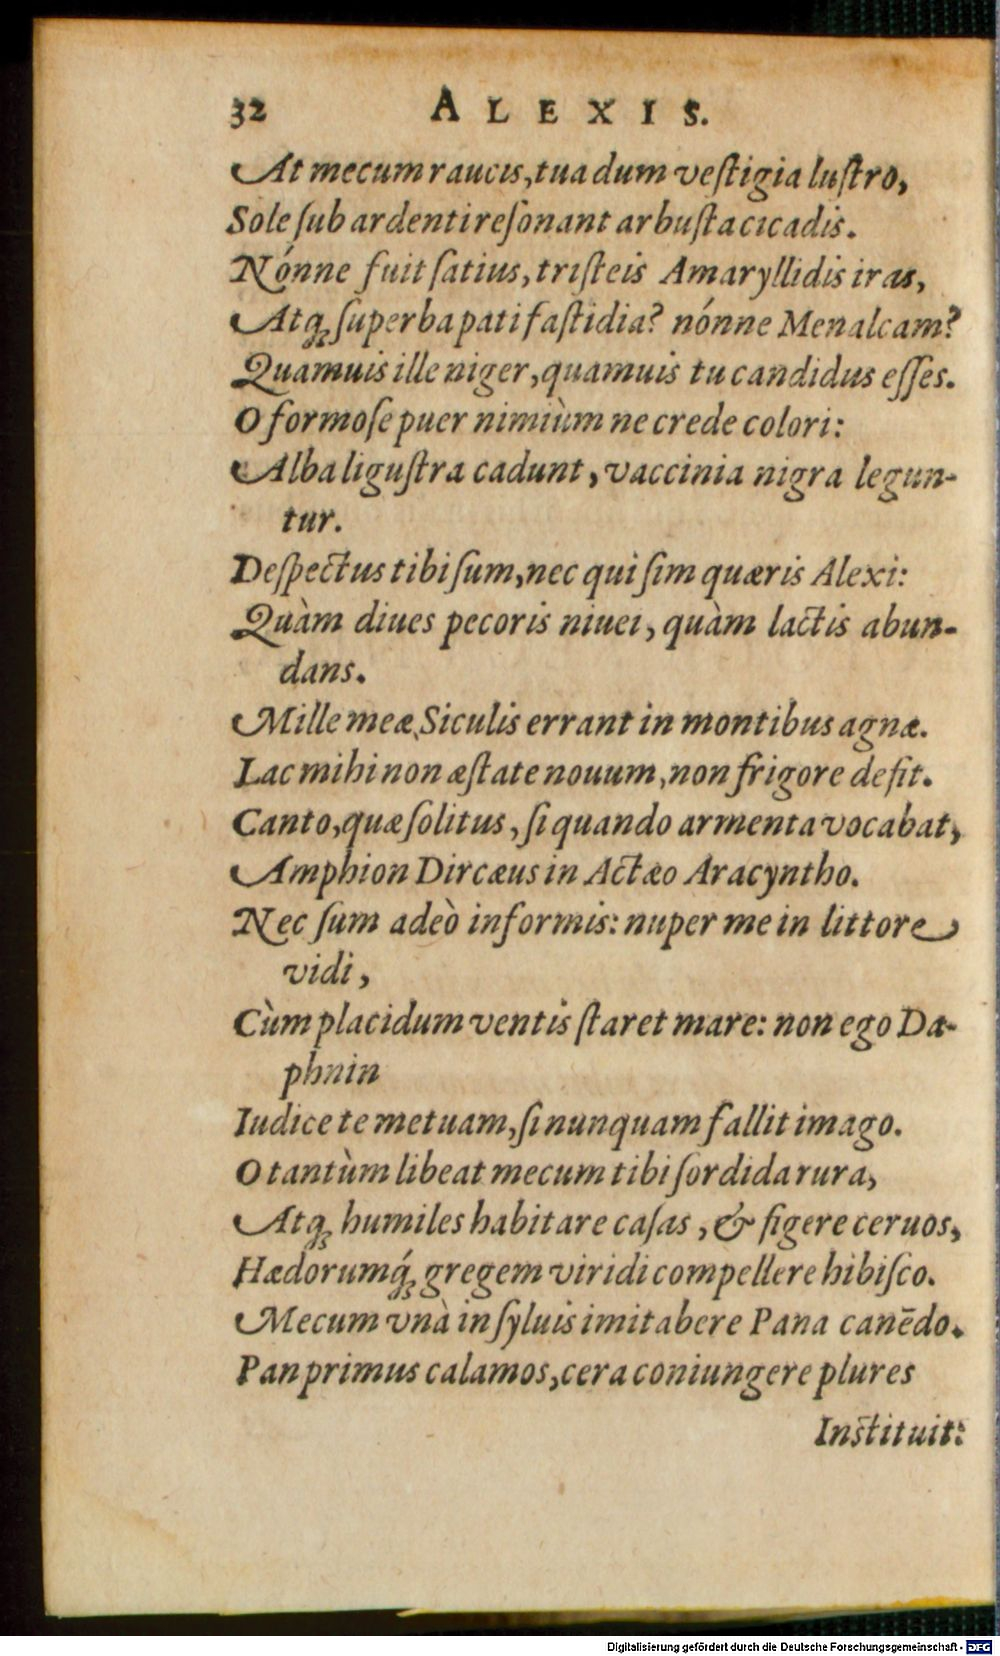 32 ALEXIS.
At mecum raucis, tua dum veſtigia luſtro,
Sole ſub ardenti reſonant arbuſta cicadis.
Nónne fuit ſatius, triſteis Amaryllidis iras,
Atq́; ſuperba pati faſtidia? nónne Menalcam?
Quamuis ille niger, quamuis tu candidus eſſes.
O formoſe puer nimiùm ne crede colori:
Alba liguſtra cadunt, vaccinia nigra legun-
tur.
Deſpectus tibi ſum, nec qui ſim quæris Alexi:
Quàm diues pecoris niuei, quàm lactis abun-
dans.
Mille meæ Siculis errant in montibus agnæ.
Lac mihi non æſtate nouum, non frigore defit.
Canto, quæ ſolitus, ſi quando armenta vocabat,
Amphion Dircæus in Actæo Aracyntho.
Nec ſum adeò informis: nuper me in littore
vidi,
Cùm placidum ventis ſtaret mare: non ego Da-
phnin
Iudice te metuam, ſi nunquam fallit imago.
O tantùm libeat mecum tibi ſordida rura,
Atq; humiles habitare caſas, & figere ceruos,
Hædorumq́; gregem viridi compellere hibiſco.
Mecum vnà in ſyluis imitabere Pana canēdo.
Pan primus calamos, cera coniungere plures
Inſtituit:
Digitalisierung gefördert durch die Deutsche Forschungsgemeinschaft - DFG